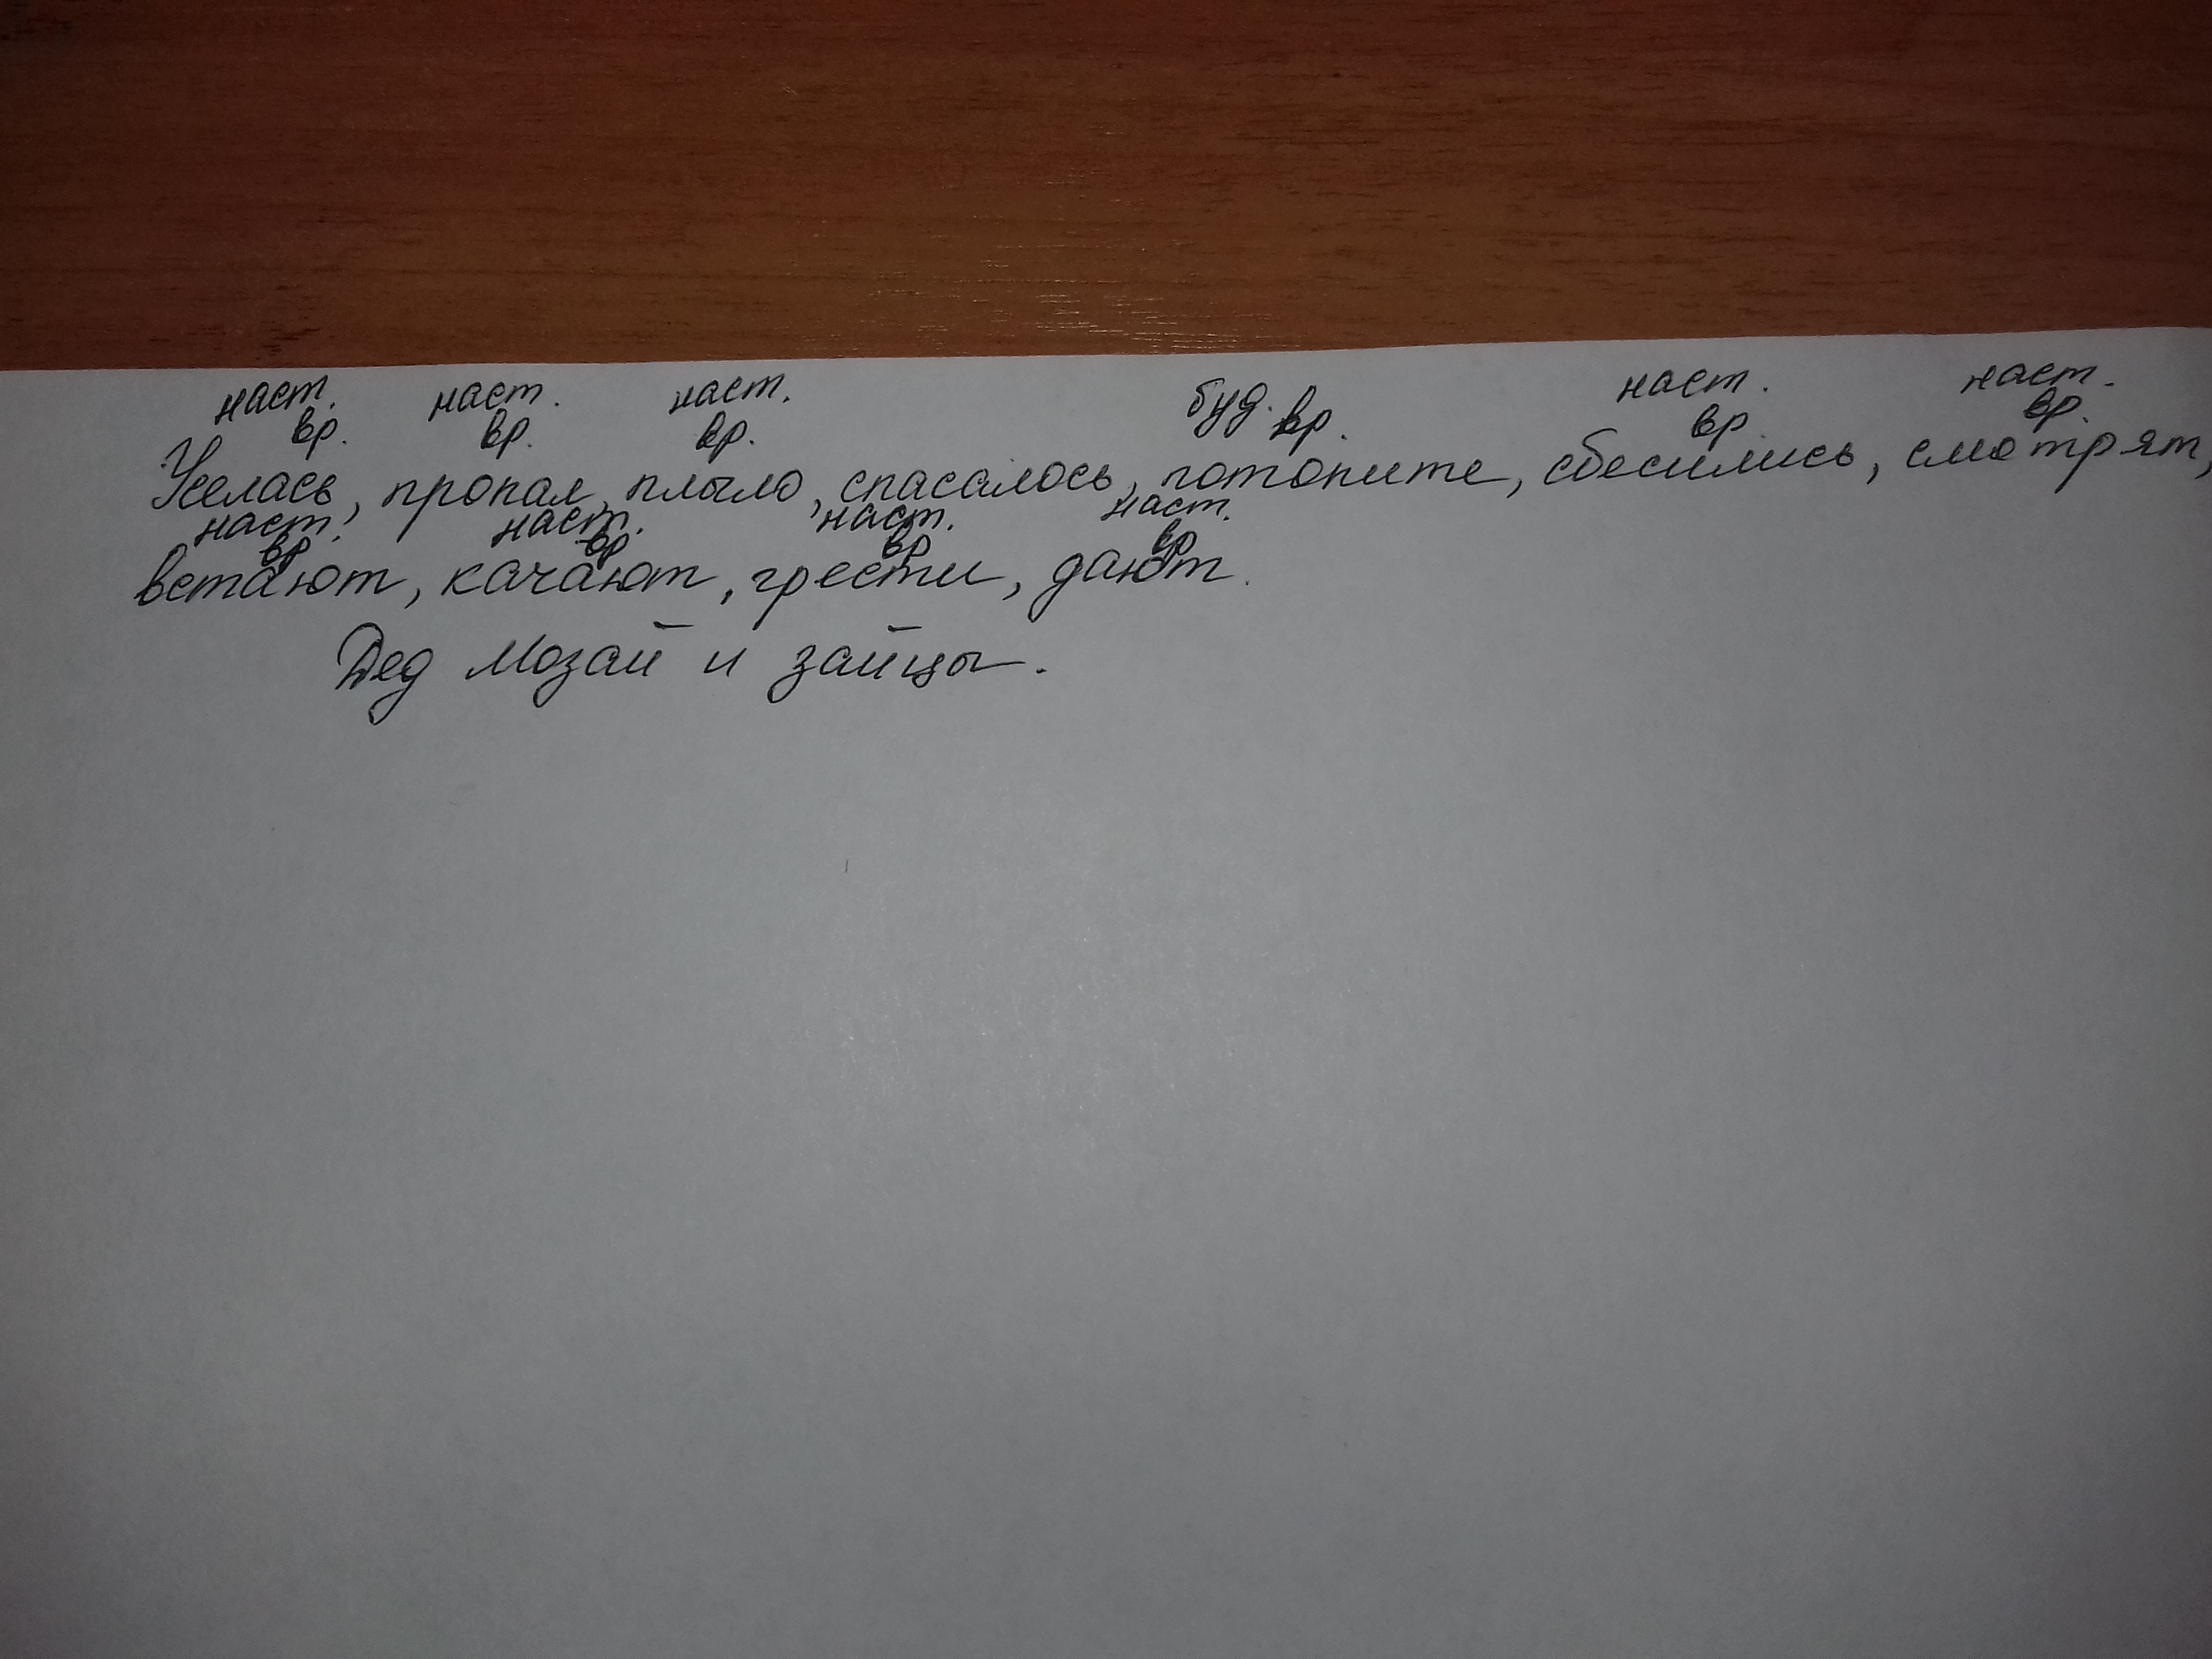 наст. наст. наст. буд. вр. наст. наст.
вр. вр. вр. вр вр.
Уселась, пропал, плыло, спасалось, потопите, сбесились, смотрят,
наст. наст. наст. наст.
вр вр вр вр
встают, качают, грести, дают.
Дед Мозай и зайцы.